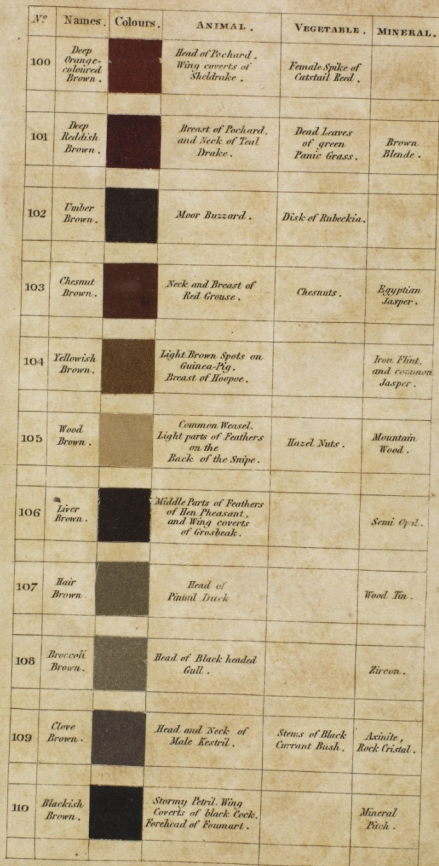 Nº Names. Colours. ANIMAL. VEGETABLE. MINERAL.
100
Deep
Orange-
coloured
Brown.
Head of Pochard.
Wing coverts of
Sheldrake.
Female Spike of
Catstail Reed.
101
Deep
Reddish
Brown.
Breast of Pochard,
and Neck of Teal
Drake.
Dead Leaves
of green
Panic Grass.
Brown
Blende.
102
Umber
Brown.
Moor Buzzard.
Disk of Rubeckia.
103
Chesnut
Brown.
Neck and Breast of
Red Grouse.
Chesnuts.
Egyptian
Jasper.
104
Yellowish
Brown.
Light Brown Spots on
Guinea-Pig.
Breast of Hoopoe.
Iron Flint,
and common
Jasper.
105
Wood
Brown.
Common Weasel.
Light parts of Feathers
on the
Back of the Snipe.
Hazel Nuts.
Mountain
Wood.
106
Liver
Brown.
Middle Parts of Feathers
of Hen Pheasant,
and Wing coverts
of Grosbeak.
Semi Opal.
107
Hair
Brown.
Head of
Pintail Duck
Wood Tin.
108
Broccoli
Brown.
Head of Black headed
Gull.
Zircon.
109
Clove
Brown.
Head and Neck of
Male Kestril.
Stems of Black
Currant Bush.
Axinite,
Rock Cristal.
110
Blackish
Brown.
Stormy Petril. Wing
Coverts of black Cock.
Forehead of Foumart.
Mineral
Pitch.